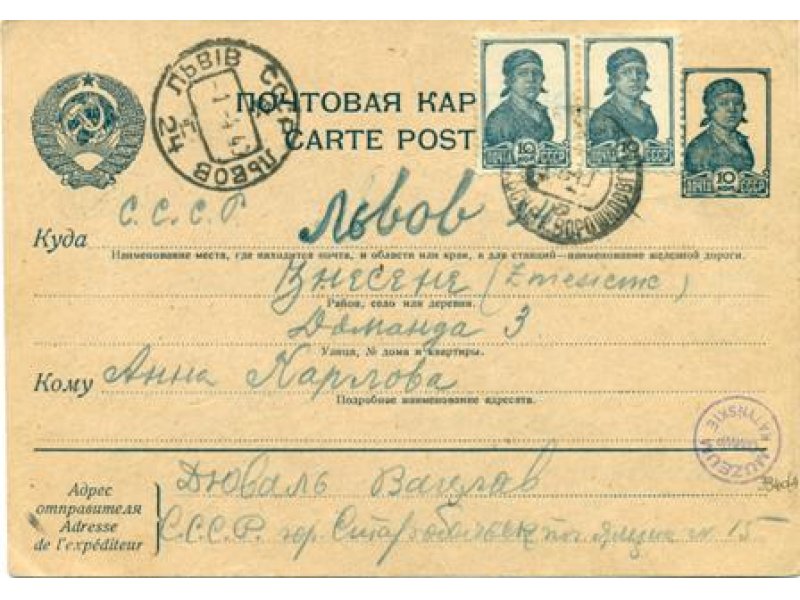 ПОЧТОВАЯ КАР
CARTE POST
ЛЬВІВ СССР ЛЬВОВ 24
10 ПОЧТА КОП. СССР
10 ПОЧТА КОП. СССР
10 ПОЧТА КОП. СССР
ВОРОШИЛОВГР
Куда С.С.С.Р Львов
Наименование места, где находится почта, и области или края, а для станций—наименование железной дороги.
Знесене (Zniesienie)
Район, село или деревня.
Доманда 3
Улица, № дома и квартиры.
Кому Анна Карлова
Подробное наименование адресата.
MUZEUM KATYŃSKIE
Адрес отправителя
Adresse de l'expéditeur
Дюваль Вацлав
С.С.С.Р. гор. Старобельск поч. ящик № 15